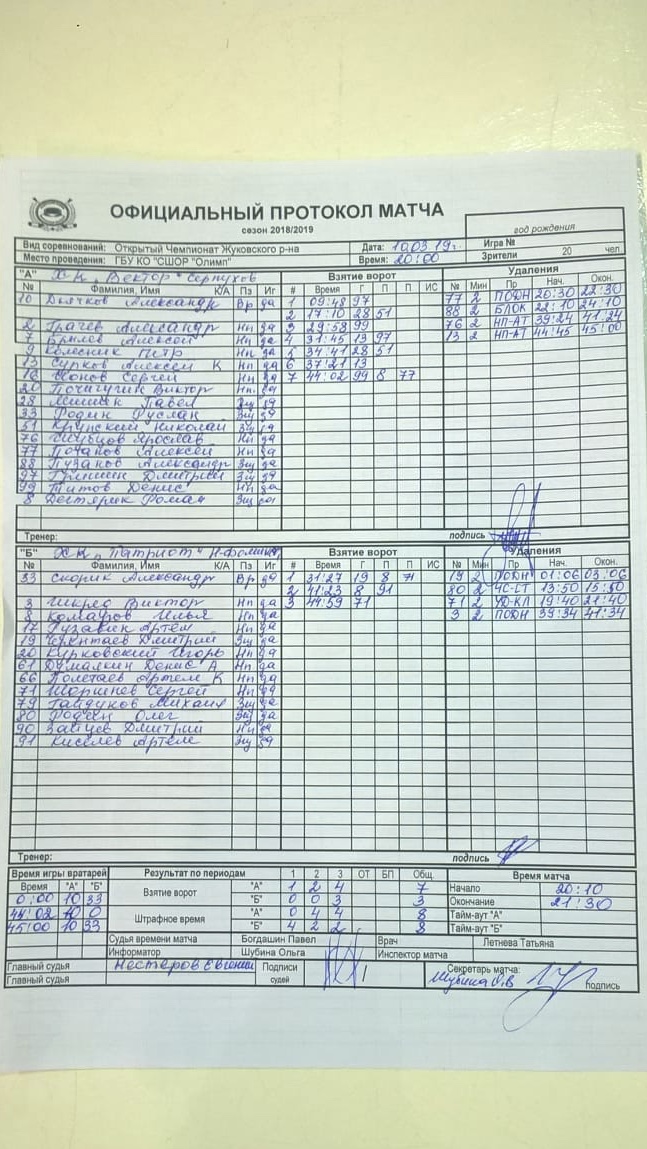 ОФИЦИАЛЬНЫЙ ПРОТОКОЛ МАТЧА
сезон 2018/2019
год рождения
Вид соревнований: Открытый Чемпионат Жуковского р-на Дата: 10.03.19г. Игра №
Место проведения: ГБУ КО "СШОР "Олимп" Время: 20:00 Зрители 20 чел.
"А" ХК "Вектор" Серпухов Взятие ворот Удаления
№ Фамилия, Имя К/А Пз Иг # Время Г П П ИС № Мин Пр Нач. Окон.
10 Дьячков Александр Вр да 1 09:48 97 77 2 ПОДН 20:30 22:30
2 17:10 28 51 88 2 БЛОК 22:10 24:10
2 Грачев Александр Нп да 3 29:58 99 76 2 НП-АТ 39:24 41:24
7 Брылев Алексей Нп да 4 31:45 13 97 13 2 НП-АТ 44:45 45:00
9 Колесник Петр Нп да 5 34:41 28 51
13 Сурков Алексей К Нп да 6 37:21 13
16 Сергей Нп да 7 44:02 99 8 77
20 Почичугин Виктор Нп да
28 Павел Зщ да
33 Родин Руслан Зщ да
51 Крупский Николай Зщ да
76 Ярослав Нп да
77 Почапов Алексей Нп да
88 Пузанов Александр Зщ да
97 Гришин Дмитрий Зщ да
99 Титов Денис Нп да
8 Дегтярик Роман Зщ да
Тренер: подпись
"Б" ХК "Патриот" Н-Фоминск Взятие ворот Удаления
№ Фамилия, Имя К/А Пз Иг # Время Г П П ИС № Мин Пр Нач. Окон.
33 Скорик Александр Вр да 1 31:27 19 8 71 19 2 ПОДН 01:06 03:06
2 41:23 8 91 80 2 ЧС-СТ 13:50 15:50
3 Шкред Виктор Нп да 3 44:59 71 71 2 УД-КЛ 19:40 21:40
8 Комаров Илья Нп да 3 2 ПОДН 39:34 41:34
17 Гузавин Артём Нп да
19 Дмитрий Зщ да
20 Курковский Игорь Нп да
61 Думалкин Денис А Нп да
66 Полетаев Артем К Нп да
71 Шоршнев Сергей Нп да
79 Гайдуков Михаил Зщ да
80 Родин Олег Зщ да
90 Зайцев Дмитрий Нп да
91 Киселев Артем Зщ да
Тренер: подпись
Время игры вратарей Результат по периодам 1 2 3 ОТ БП Общ. Время матча
Время "А" "Б" Взятие ворот "А" 1 2 4 7 Начало 20:10
0:00 10 33 "Б" 0 0 3 3 Окончание 21:30
44:02 10 0 Штрафное время "А" 0 4 4 8 Тайм-аут "А"
45:00 10 33 "Б" 4 2 2 8 Тайм-аут "Б"
Судья времени матча Богдашин Павел Врач Летнева Татьяна
Информатор Шубина Ольга Инспектор матча
Главный судья Нестеров Евгений Подписи судей Секретарь матча: Шубина О.В подпись
Главный судья